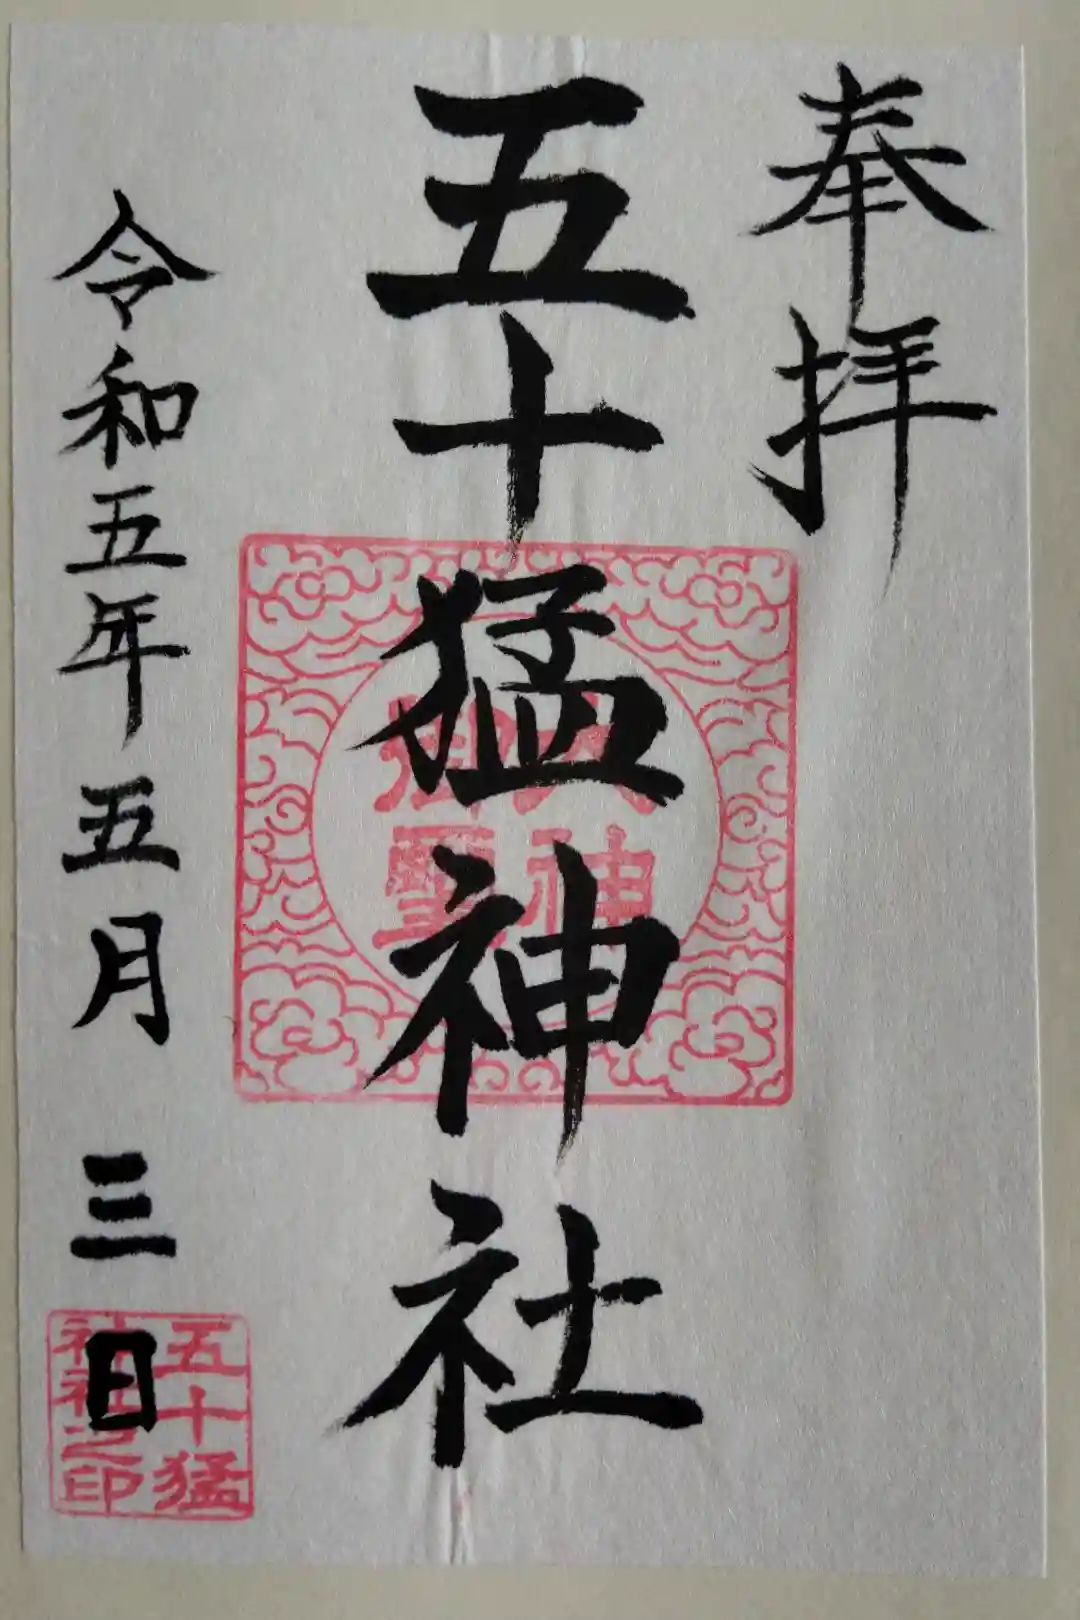 奉拝
五十猛神社
神
令和五年五月三日
五十猛
神社之印